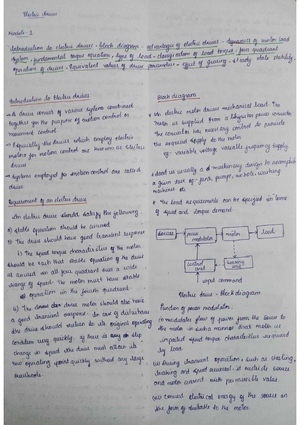 Electric drives
Module - 1
Introduction to electric drives - block diagram - advantages of electric drives - Dynamics of motor load
system, fundamental torque equation, types of load - classification of load torque - four quadrant
operation of drives - Equivalent values of drive parameters - effect of gearing - steady state stability.
Introduction to Electric drives
A drive consist of various systems combined
together for the purpose of motion control or
movement control
→ Especially the drives which employ electric
motors for motion control are known as Electric
drives
→ Systems employed for motion control are called
drives
Requirement of an electric drive
An electric drive should satisfy the following
a) stable operation should be assured
b) The drive should have good transient response
1) The speed torque characteristics of the motor
should be such that stable operation of the drive
is assured on all four quadrant over a wide
range of speed. The motor must have stable
operation in the fourth quadrant.
2) The drive motor should also have
a good transient response. In case of disturbance
the drive should return to its original operating
condition very quickly. If there is any step
change in speed the drive must attain its
new operating point quickly without any large
Block diagram
An electric motor drives mechanical load. The
motor is supplied from a power converter
The converter has necessary control to provide
the required supply to the motor
eg: variable voltage variable frequency supply
Load is usually a machinery design to accomplish
a given task eg:- fans, pumps, robots, washing
machines etc
The load requirements can be specified in terms
of speed and torque demand
source
power modulator
motor
load
control unit
sensing unit
input command
Electric drive - Block diagram.
Function of power modulator
i) modulates flow of power from the source to
the motor in such a manner that motor is
imparted speed torque characteristics required
by load
ii) During transient operations, such as starting,
braking and speed reversal it restricts source
and motor current with permissible value
iii) Convert electrical energy of the source in
the form of suitable to the motor